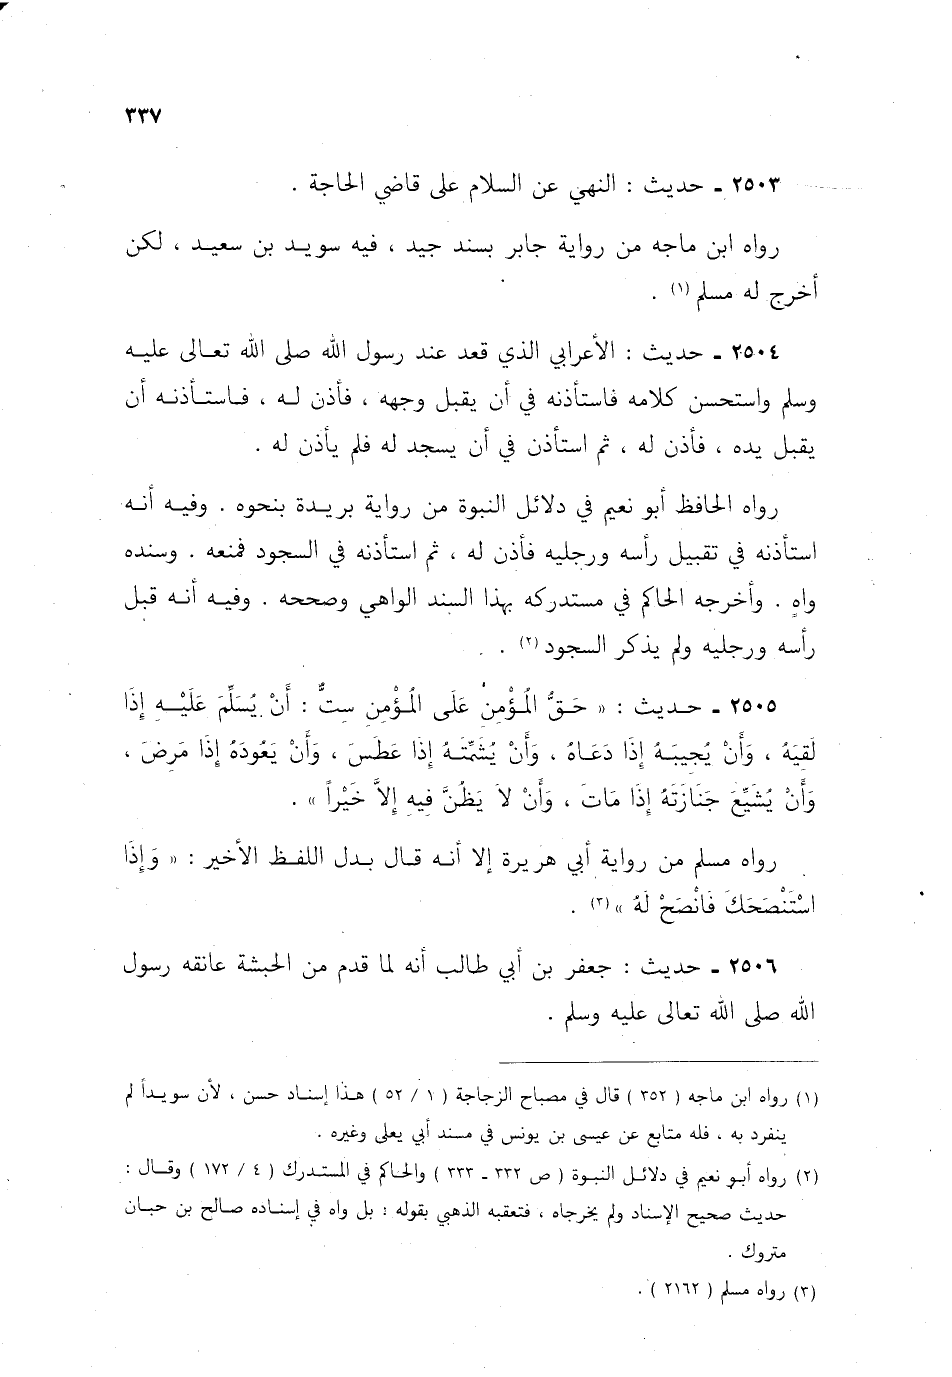 ٣٣٧
٢٥٠٣ ـ حديث : النهي عن السلام على قاضي الحاجة .
رواه ابن ماجه من رواية جابر بسند جيد ، فيه سويد بن سعيد ، لكن
أخرج له مسلم (١) .
٢٥٠٤ ـ حديث : الأعرابي الذي قعد عند رسول الله صلى الله تعالى عليه
وسلم واستحسن كلامه فاستأذنه في أن يقبل وجهه ، فأذن له ، فاستأذنه أن
يقبل يده ، فأذن له ، ثم استأذن في أن يسجد له فلم يأذن له .
رواه الحافظ أبو نعيم في دلائل النبوة من رواية بريدة بنحوه . وفيه أنه
استأذنه في تقبيل رأسه ورجليه فأذن له ، ثم استأذنه في السجود فمنعه . وسنده
واهٍ . وأخرجه الحاكم في مستدركه بهذا السند الواهي وصححه . وفيه أنه قبل
رأسه ورجليه ولم يذكر السجود (٢) .
٢٥٠٥ ـ حديث : « حَقُّ الْمُؤْمِنِ عَلَى الْمُؤْمِنِ سِتٌّ : أَنْ يُسَلِّمَ عَلَيْهِ إِذَا
لَقِيَهُ ، وَأَنْ يُجِيبَهُ إِذَا دَعَاهُ ، وَأَنْ يُشَمِّتَهُ إِذَا عَطَسَ ، وَأَنْ يَعُودَهُ إِذَا مَرِضَ ،
وَأَنْ يُشَيِّعَ جَنَازَتَهُ إِذَا مَاتَ ، وَأَنْ لاَ يَظُنَّ فِيهِ إِلاَّ خَيْراً » .
رواه مسلم من رواية أبي هريرة إلا أنه قال بدل اللفظ الأخير : « وَإِذَا
اسْتَنْصَحَكَ فَانْصَحْ لَهُ » (٣) .
٢٥٠٦ ـ حديث : جعفر بن أبي طالب أنه لما قدم من الحبشة عانقه رسول
الله صلى الله تعالى عليه وسلم .
(١) رواه ابن ماجه ( ٣٥٢ ) قال في مصباح الزجاجة ( ١ / ٥٢ ) هذا إسناد حسن ، لأن سويداً لم
ينفرد به ، فله متابع عن عيسى بن يونس في مسند أبي يعلى وغيره .
(٢) رواه أبو نعيم في دلائل النبوة ( ص ٣٣٢ ـ ٣٣٣ ) والحاكم في المستدرك ( ٤ / ١٧٢ ) وقال :
حديث صحيح الإسناد ولم يخرجاه ، فتعقبه الذهبي بقوله : بل واه في إسناده صالح بن حبان
متروك .
(٣) رواه مسلم ( ٢١٦٢ ) .